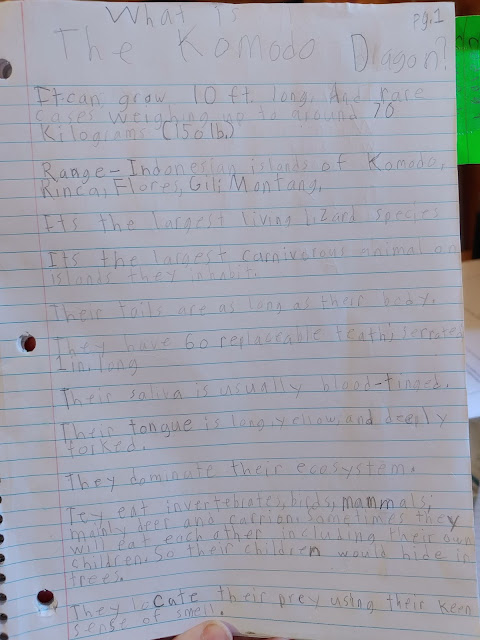 What is
pg.1
The Komodo Dragon?
It can grow 10 ft long, And rare
cases weighing up to around 70
Kilograms (150lb.)
Range - Indonesian islands of Komodo,
Rinca, Flores, Gili Montang.
Its the largest living lizard species
Its the largest carniverous animal on
islands they inhabit.
Their tails are as long as their body.
They have 60 replaceable teath, serrated
1 in. long
Their saliva is usually blood-tinged.
Their tongue is long, yellow, and deeply
forked.
They dominate their ecosystem.
Tey eat invertebrates, birds, mammals;
mainly deer and carrion. Sometimes they
will eat each other including their own
children. So their children would hide in
trees.
They locate their prey using their keen
sense of smell.